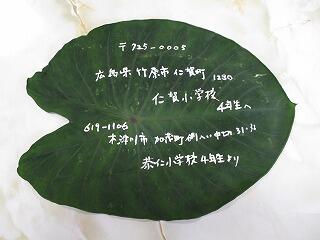 〒725-0005
広島県竹原市仁賀町 1230
仁賀小学校
4年生へ
619-1106
木津川市 加茂町例へい中切31.31
恭仁小学校4年生より